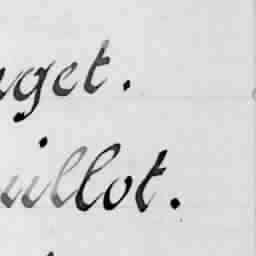 uget.
uillot.